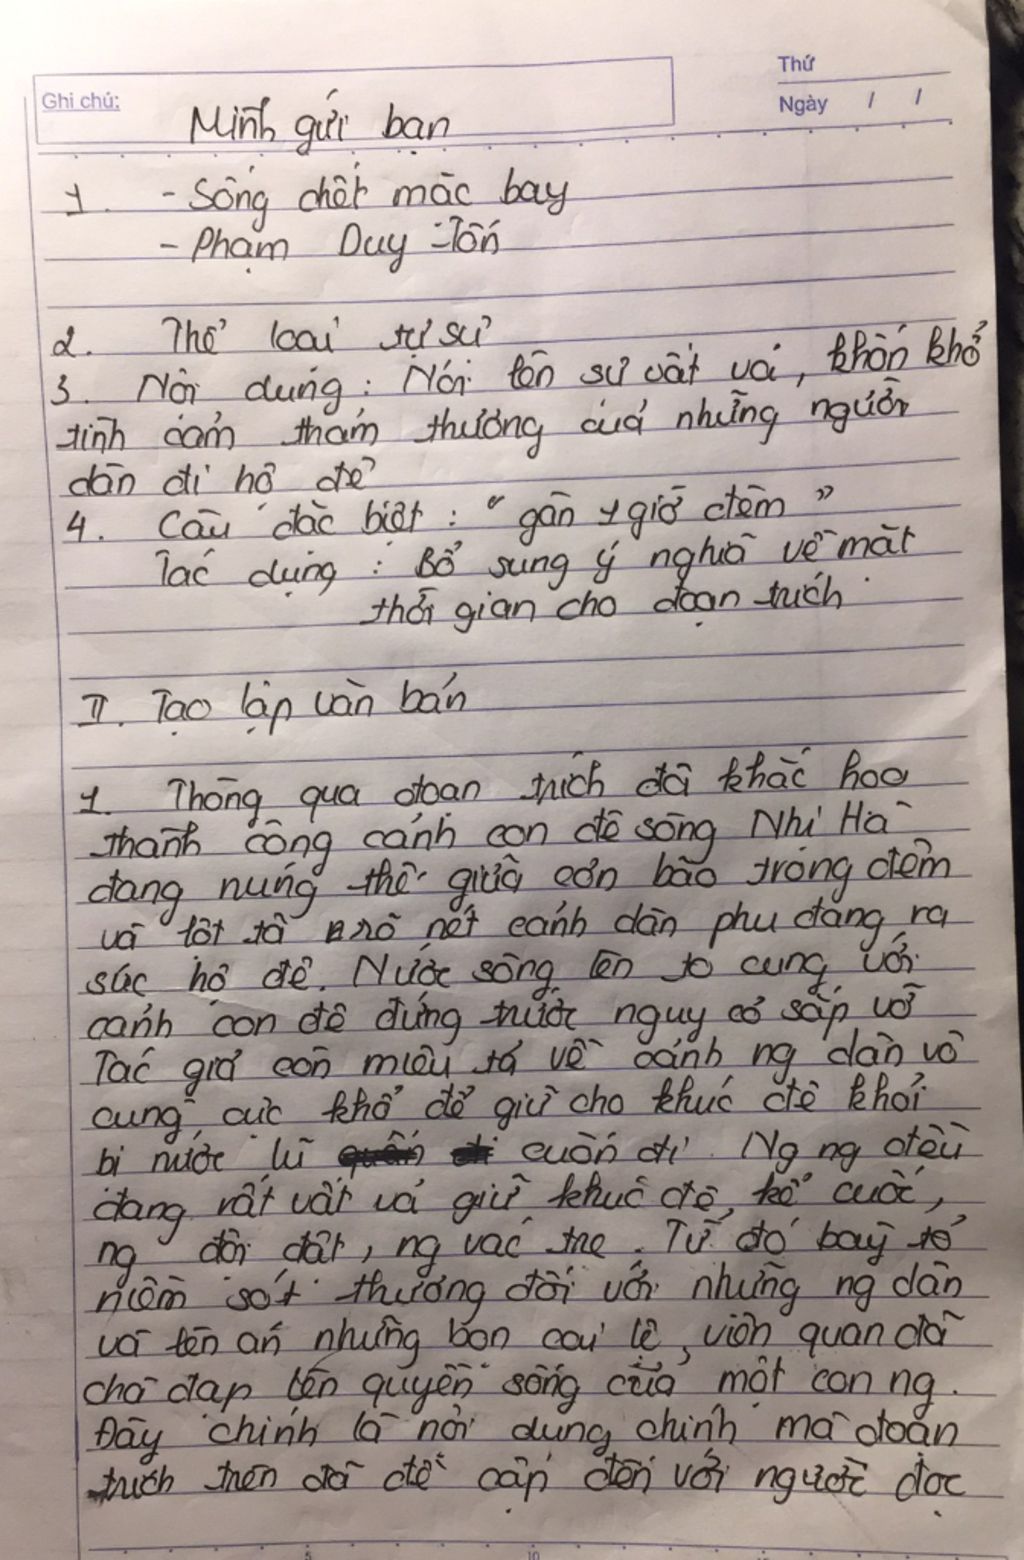 Thứ
Ghi chú:
Ngày / /
Mình gửi bạn
1. - Sống chết mặc bay
- Phạm Duy Tốn
2. Thể loại tự sự
3. Nội dung: Nói lên sự vất vả, khốn khổ
tình cảm thảm thương của những người
dân đi hộ đê
4. Câu đặc biệt: "gần 1 giờ đêm"
Tác dụng: Bổ sung ý nghĩa về mặt
thời gian cho đoạn trích.
II. Tạo lập văn bản
1. Thông qua đoạn trích đã khắc hoạ
thành công cảnh con đê sông Nhị Hà
đang núng thế giữa cơn bão trong đêm
và lột tả rõ nét cảnh dân phu đang ra
sức hộ đê. Nước sông lên to cùng với
cảnh con đê đứng trước nguy cơ sắp vỡ
Tác giả còn miêu tả về cảnh ng dân vô
cùng cực khổ để giữ cho khúc đê khỏi
bị nước lũ cuốn đi. Ng ng đều
đang rất vất vả giữ khúc đê, kẻ cuốc,
ng đội đất, ng vác tre. Từ đó bày tỏ
niềm sót thương đối với những ng dân
và lên án những bọn cai lệ, viên quan đã
chà đạp lên quyền sống của một con ng.
Đây chính là nội dung chính mà đoạn
trích trên đã đề cập đến với người đọc
5
10